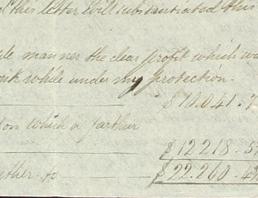 this letter will substantiated this
manner the clear profit which
while under my protection.
$10.041.7
on which a farther
$12218.5
$22.260.